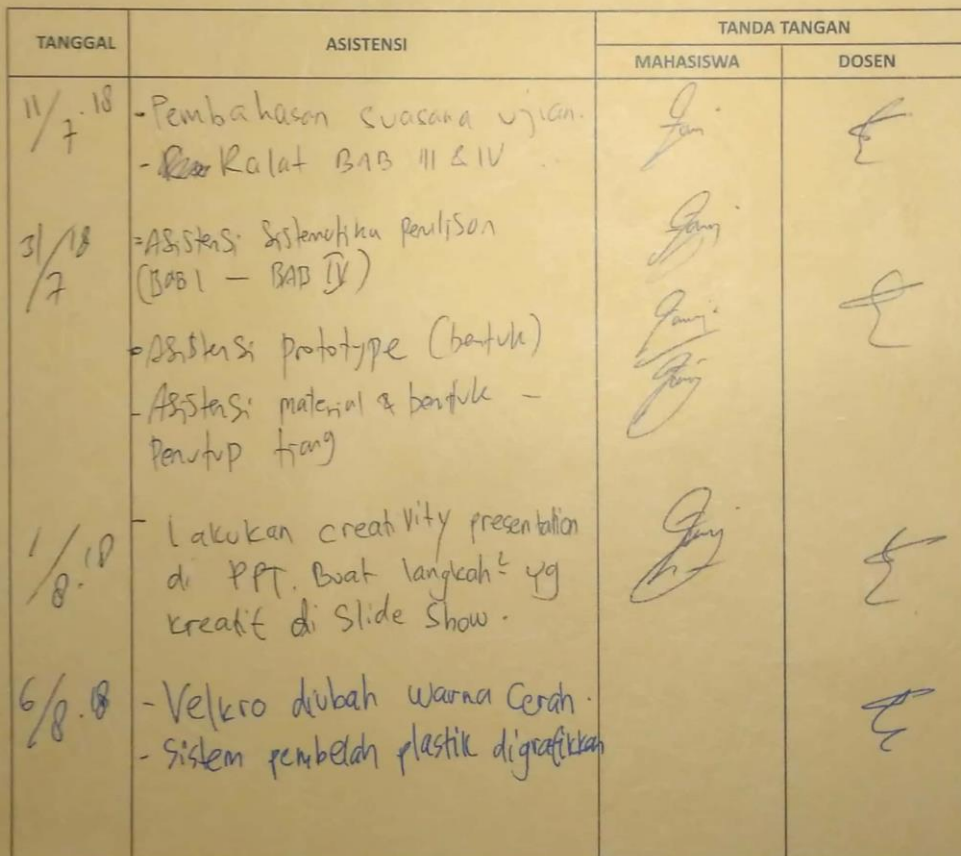 TANGGAL
ASISTENSI
TANDA TANGAN
MAHASISWA
DOSEN
11/7.18
- Pembahasan suasana ujian.
- Ralat BAB III & IV
31/7/18
- Asistensi Sistematika Penulisan
(BAB I — BAB IV)
• Asistensi prototype (bentuk)
- Asistensi material & bentuk -
Penutup tiang
1/8.18
- Lakukan creativity presentation
di PPT. Buat langkah² yg
kreatif di Slide Show.
6/8.18
- Velkro diubah warna Cerah.
- Sistem pembelah plastik digrafikkan